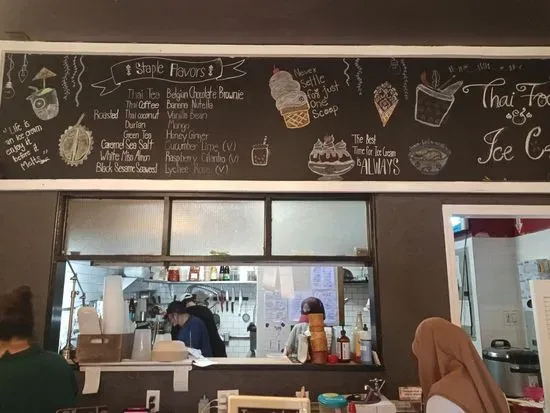 Staple Flavors
Thai Tea
Thai Coffee
Roasted Thai coconut
Durian
Green Tea
Caramel Sea Salt
White Miso Almon
Black Sesame Seaweed
Belgian Chocolate Brownie
Banana Nutella
Vanilla Bean
Mango
Honey Ginger
Cucumber Lime (V)
Raspberry Cilantro (V)
Lychee Rose (V)
"Life is
an ice cream
enjoy it
before it
Melts..."
Never
Settle
for just
One
Scoop
"The Best
Time for Ice Cream
is ALWAYS
Thai Foo
&
Ice C